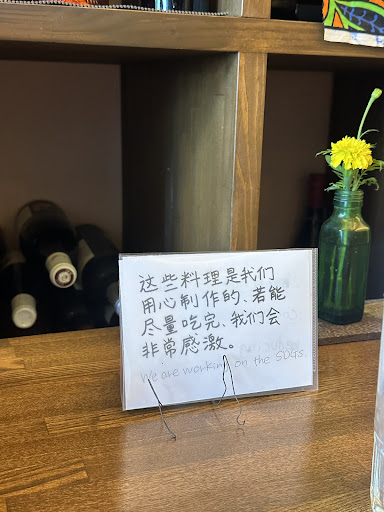 这些料理是我们
用心制作的、若能
尽量吃完、我们会
非常感激。
We are working on the SDGs.